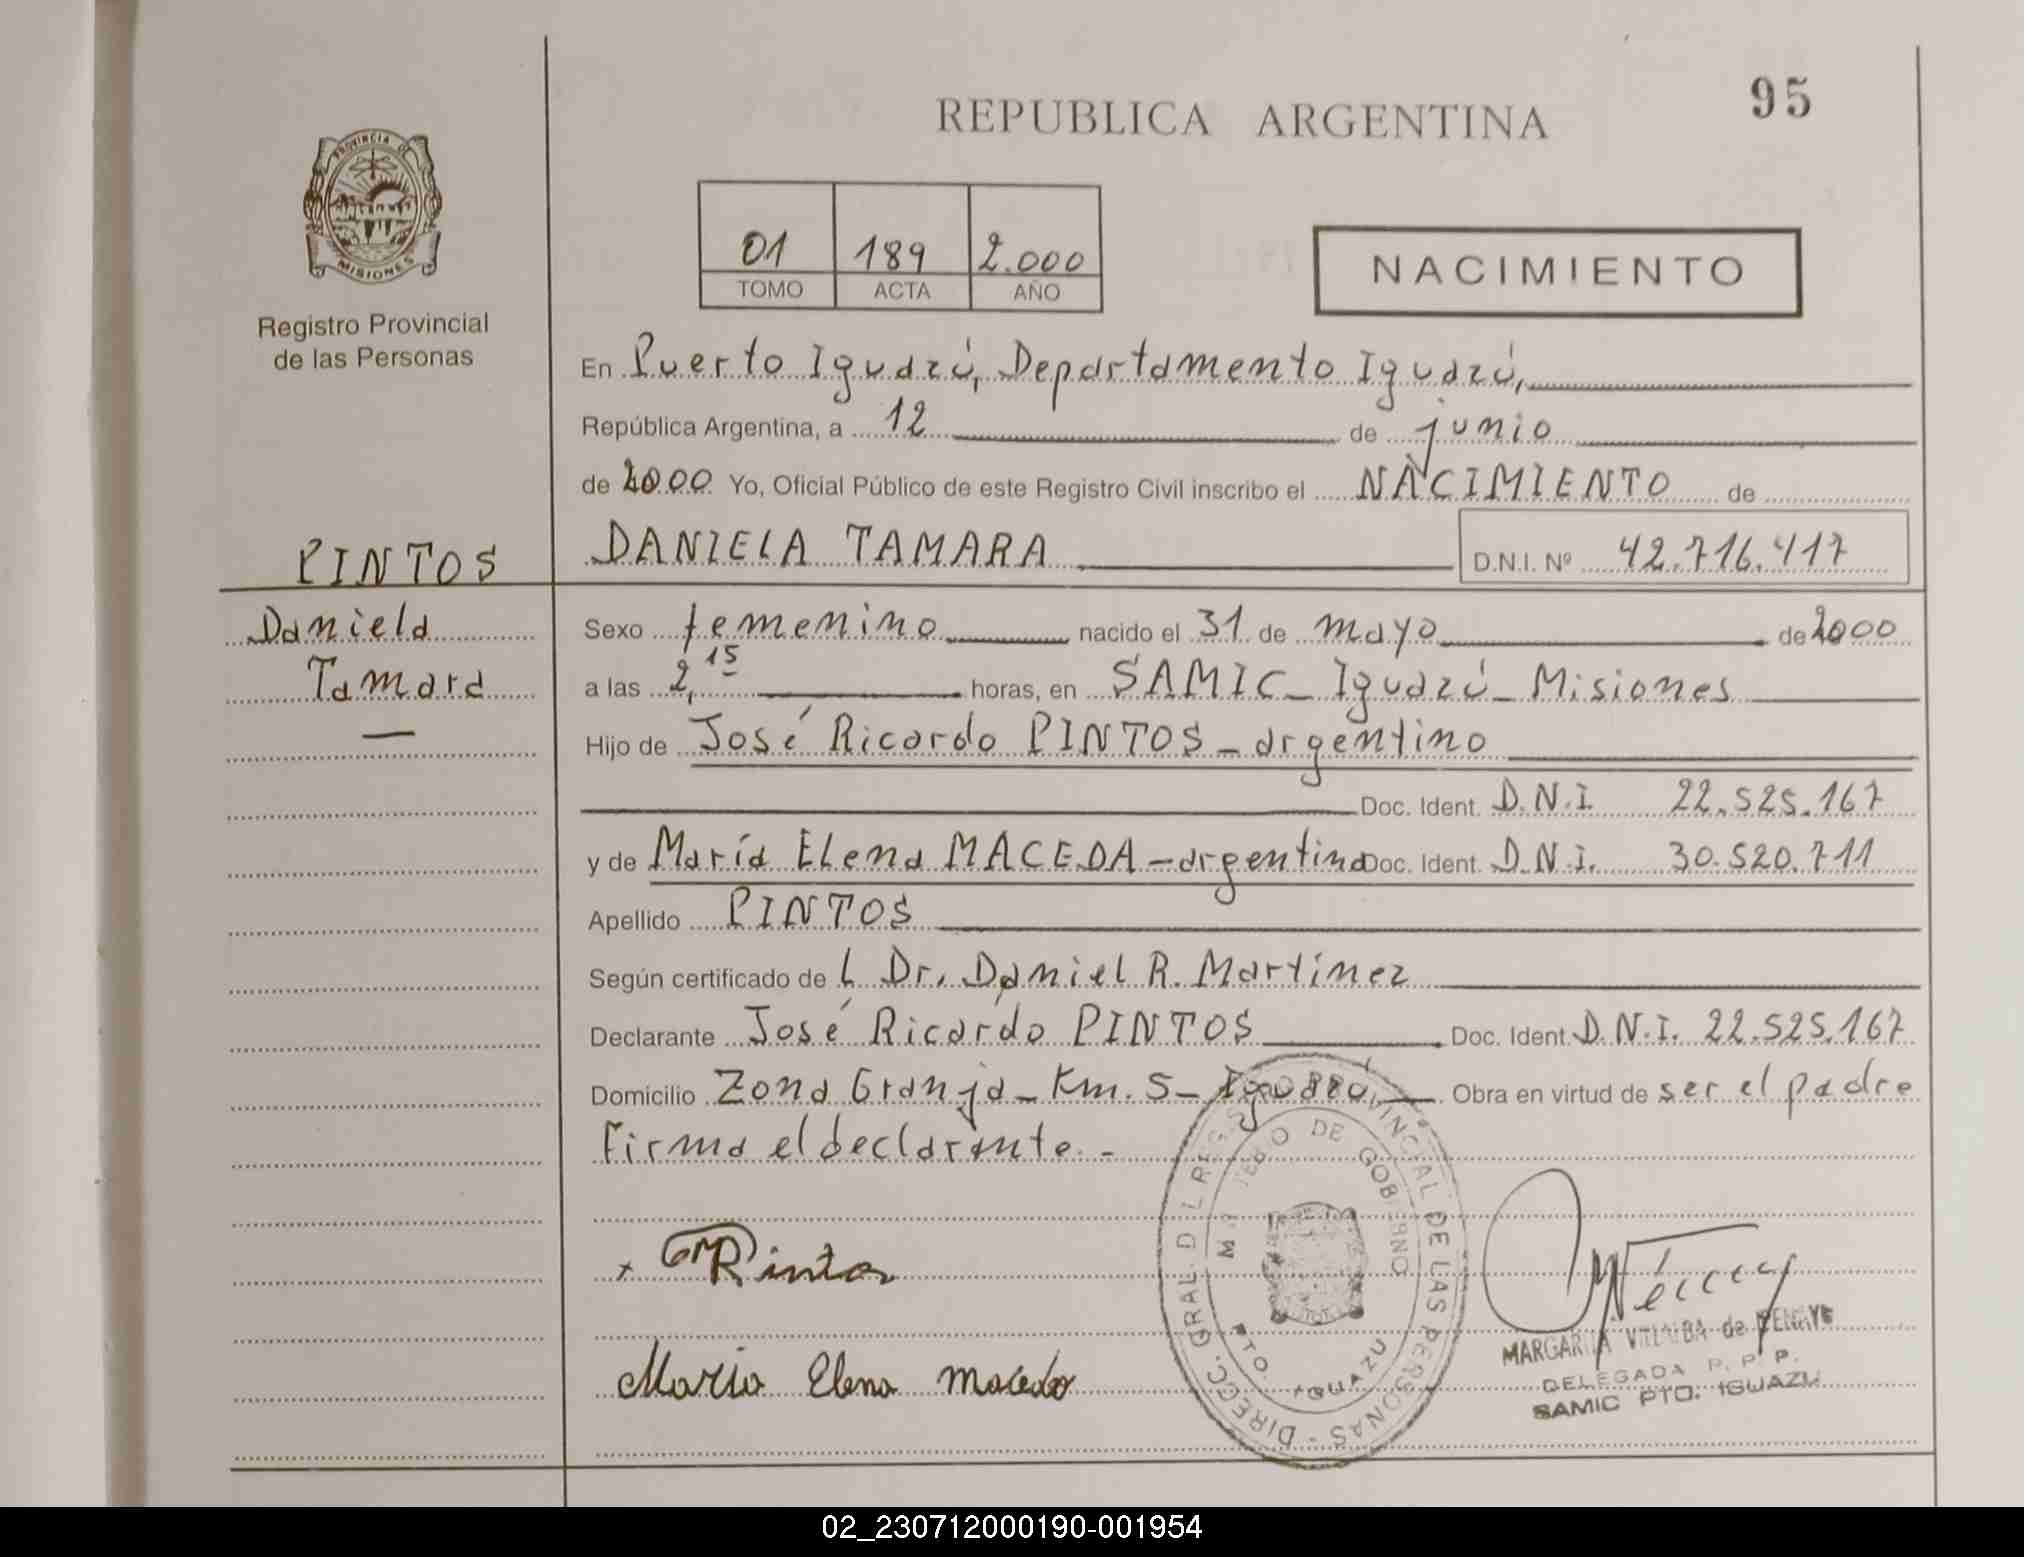 REPUBLICA ARGENTINA
95
PROVINCIA DE
MISIONES
Registro Provincial
de las Personas
01 189 2.000
TOMO ACTA AÑO
NACIMIENTO
En Puerto Iguazú, Departamento Iguazú,
República Argentina, a 12 de junio
de 2000 Yo, Oficial Público de este Registro Civil inscribo el NACIMIENTO de
PINTOS
DANIELA TAMARA D.N.I. Nº 42.716.417
Daniela
Sexo femenino nacido el 31 de mayo de 2000
Tamara
a las 2,15 horas, en SAMIC_ Iguazú_ Misiones
Hijo de José Ricardo PINTOS_argentino
Doc. Ident. D.N.I. 22.525.167
y de María Elena MACEDA-argentina Doc. Ident. D.N.I. 30.520.711
Apellido PINTOS
Según certificado de L Dr. Daniel R. Martínez
Declarante José Ricardo PINTOS Doc. Ident. D.N.I. 22.525.167
Domicilio Zona Granja_Km.5_Iguazú, Obra en virtud de ser el padre
Firma el declarante.-
x Pintos
María Elena maceda
DIRECC. GRAL. D L REGISTRO PROVINCIAL DE LAS PERSONAS -
DE GOBIERNO
PTO. IGUAZU
MARGARITA VILLALBA de
DELEGADA P. P. P.
SAMIC PTO. IGUAZU
02_230712000190-001954